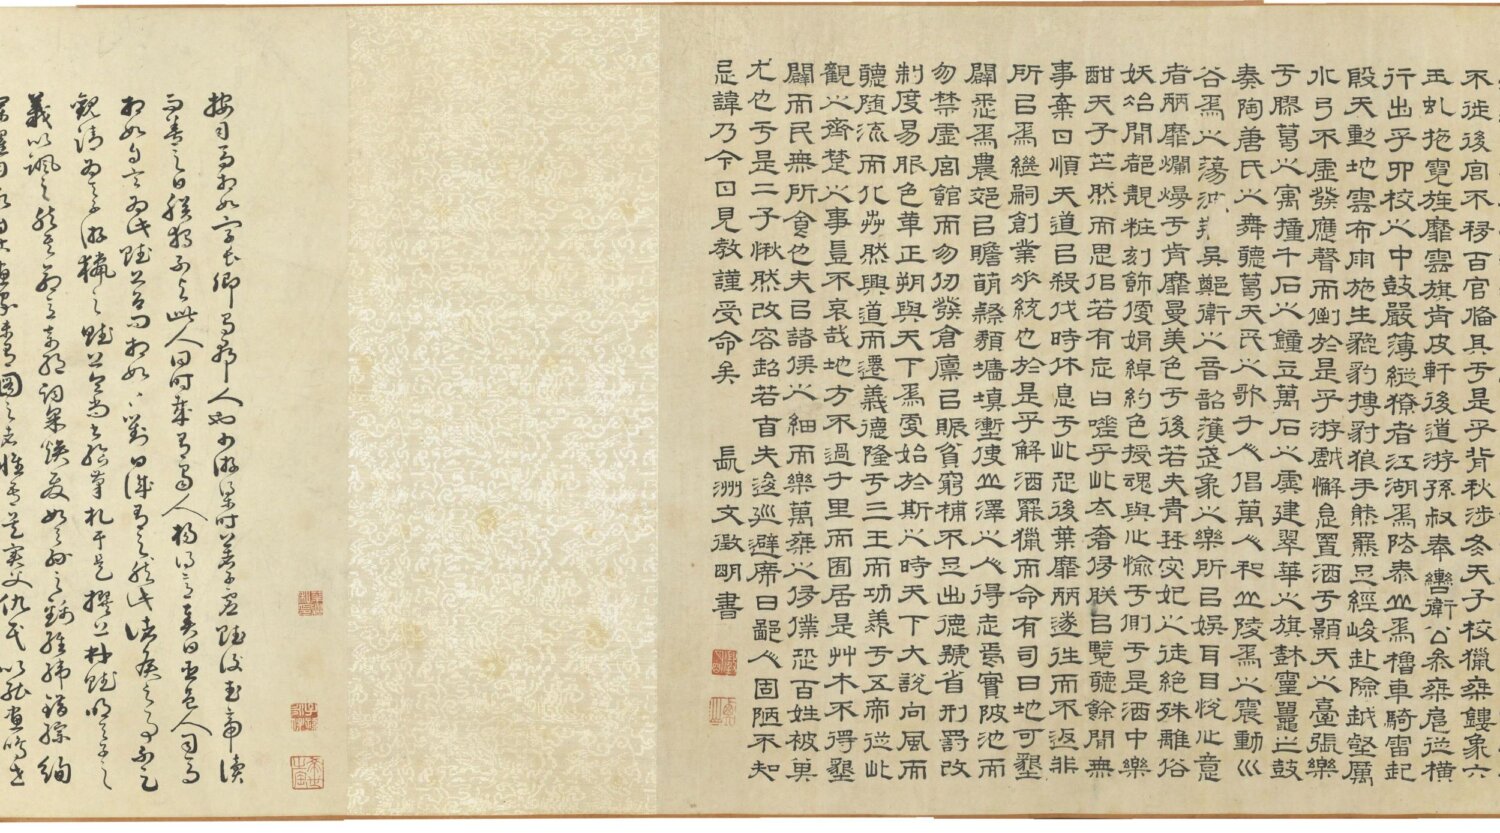 不徙後宮不移百官備具于是乎背秋涉冬天子校獵乘鏤象六
玉虬拖霓旌靡雲旗前皮軒後道游孫叔奉轡衛公參乘扈從橫
行出乎四校之中鼓嚴薄縱獠者江湖為阹泰山為櫓車騎雷起
殷天動地雲布雨施生貔豹搏豺狼手熊羆足經峻赴險越壑厲
水弓不虛發應聲而倒於是乎游戲懈怠置酒于顥天之臺張樂
于膠葛之寓撞千石之鐘立萬石之虡建翠華之旗樹靈鼉之鼓
奏陶唐氏之舞聽葛天氏之歌千人倡萬人和山陵為之震動川
谷為之蕩波荊吳鄭衛之音韶濩武象之樂所以娛耳目悅心意
者麗靡爛熳于前靡曼美色于後若夫青琴宓妃之徒絕殊離俗
妖冶閒都靚粧刻飾便娟綽約色授魂與心愉于側于是酒中樂
酣天子芒然而思佀若有亡曰嗟乎此太奢侈朕以覽聽餘閒無
事棄日順天道以殺伐時休息于此恐後葉靡麗遂往而不返非
所以為繼嗣創業垂統也於是乎解酒罷獵而命有司曰地可墾
闢悉為農郊以贍萌隸頹墻填塹使山澤之人得走焉實陂池而
勿禁虛宮館而勿仞發倉廩以賑貧窮補不足出德號省刑罰改
制度易服色革正朔與天下為更始於斯之時天下大說向風而
聽隨流而化芔然興道而遷義德隆于三王而功羨于五帝從此
觀之齊楚之事豈不哀哉地方不過千里而囿居是艸木不得墾
闢而民無所食也夫以諸侯之細而樂萬乘之侈僕恐百姓被其
尤也于是二子愀然改容超若自失逡巡避席曰鄙人固陋不知
忌諱乃今日見教謹受命矣 長洲文徵明書
按司馬相如字長卿蜀郡人也少游梁時著子虛賦後武帝讀
而善之曰朕獨不與此人同時哉有蜀人楊得意奏曰臣邑人司馬
相如自言為此賦上召問相如相如對曰誠有之然此諸侯之事不足
觀請為天子游獵之賦上令尚書給筆札于是撰上林賦明天子之
義以諷之 錯綜絢